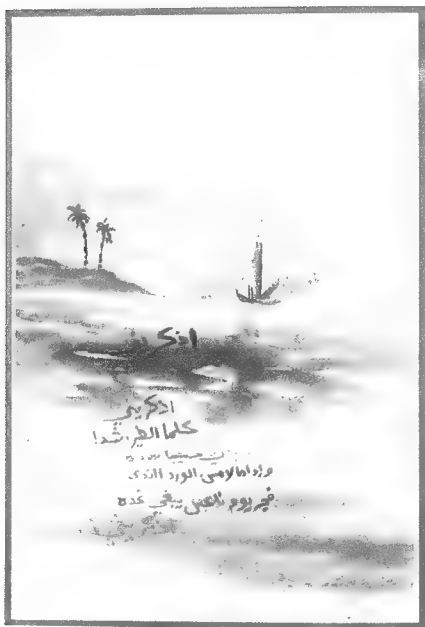 اذكر
اذكريني
كلما الطير شدا!
وإذا ما لامس الورد الندى
فجر يوم يبغي غده